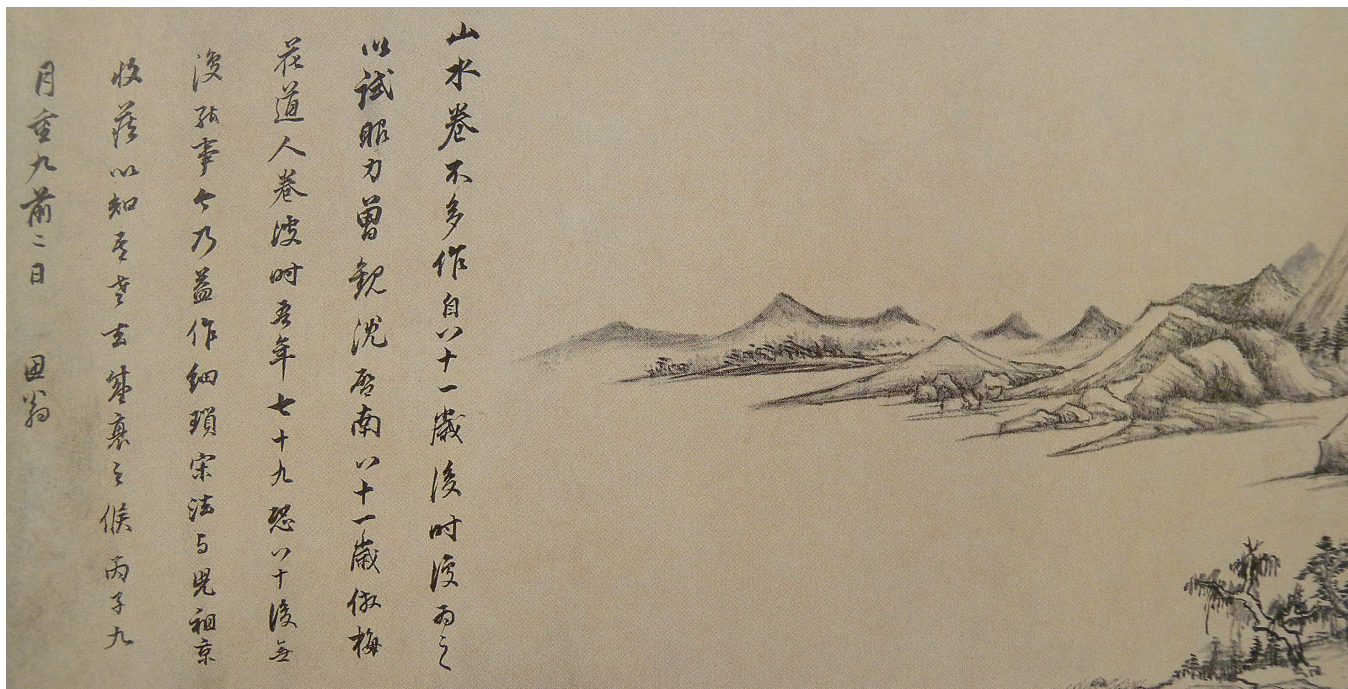 山水卷不多作自八十一歲後時復為之
以試眼力曾觀沈啓南八十一歲倣梅
花道人卷彼時吾年七十九恐八十後無
復能事今乃益作細瑣宋法与兒祖京
收藏以知吾老去盛衰之候丙子九
月重九前二日 思翁